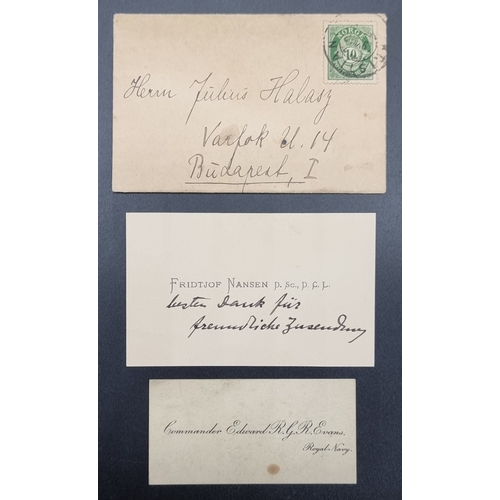 NORGE
10
Herrn Julius Halasz
Varfok U. 14
Budapest, I
FRIDTJOF NANSEN D. Sc., D. C. L.
besten Dank für
freundliche Zusendung
Commander Edward R.G.R. Evans,
Royal Navy.